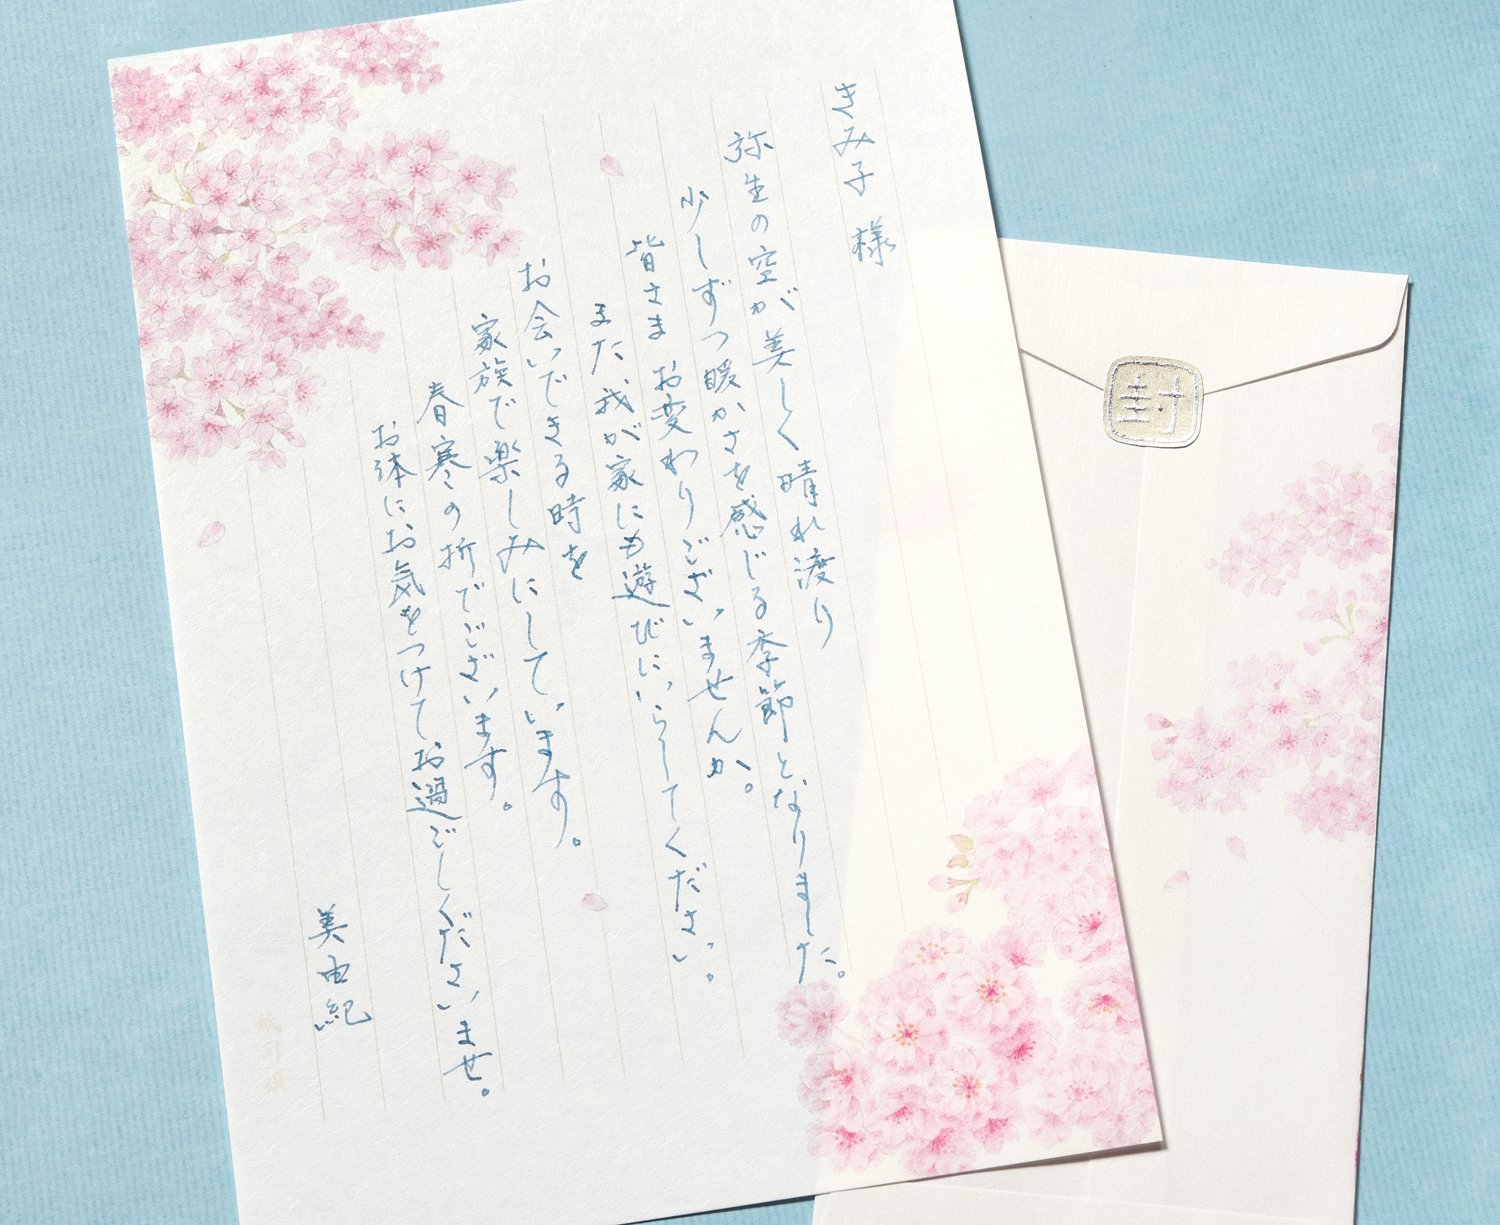 きみ子 様
弥生の空が美しく晴れ渡り
少しずつ暖かさを感じる季節となりました。
皆さま お変わりございませんか。
また、我が家にも遊びにいらしてください。
お会いできる時を
家族で楽しみにしています。
春寒の折でございます。
お体にお気をつけてお過ごしくださいませ。
美由紀
封